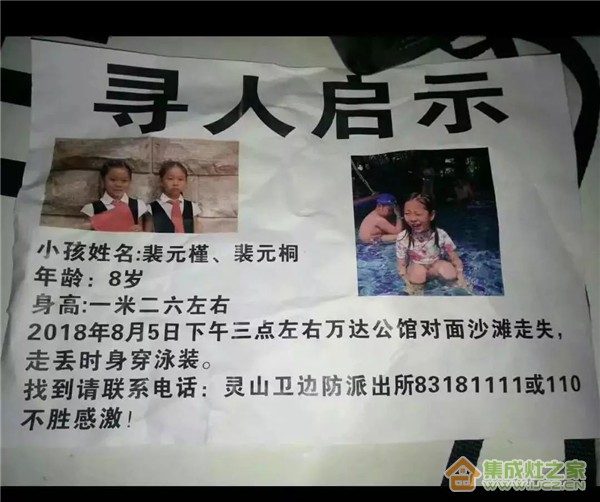 寻人启示
小孩姓名:裴元槿、裴元桐
年龄：8岁
身高:一米二六左右
2018年8月5日下午三点左右万达公馆对面沙滩走失，
走丢时身穿泳装。
找到请联系电话：灵山卫边防派出所83181111或110
不胜感激！
集成灶之家
www.jcz.cn